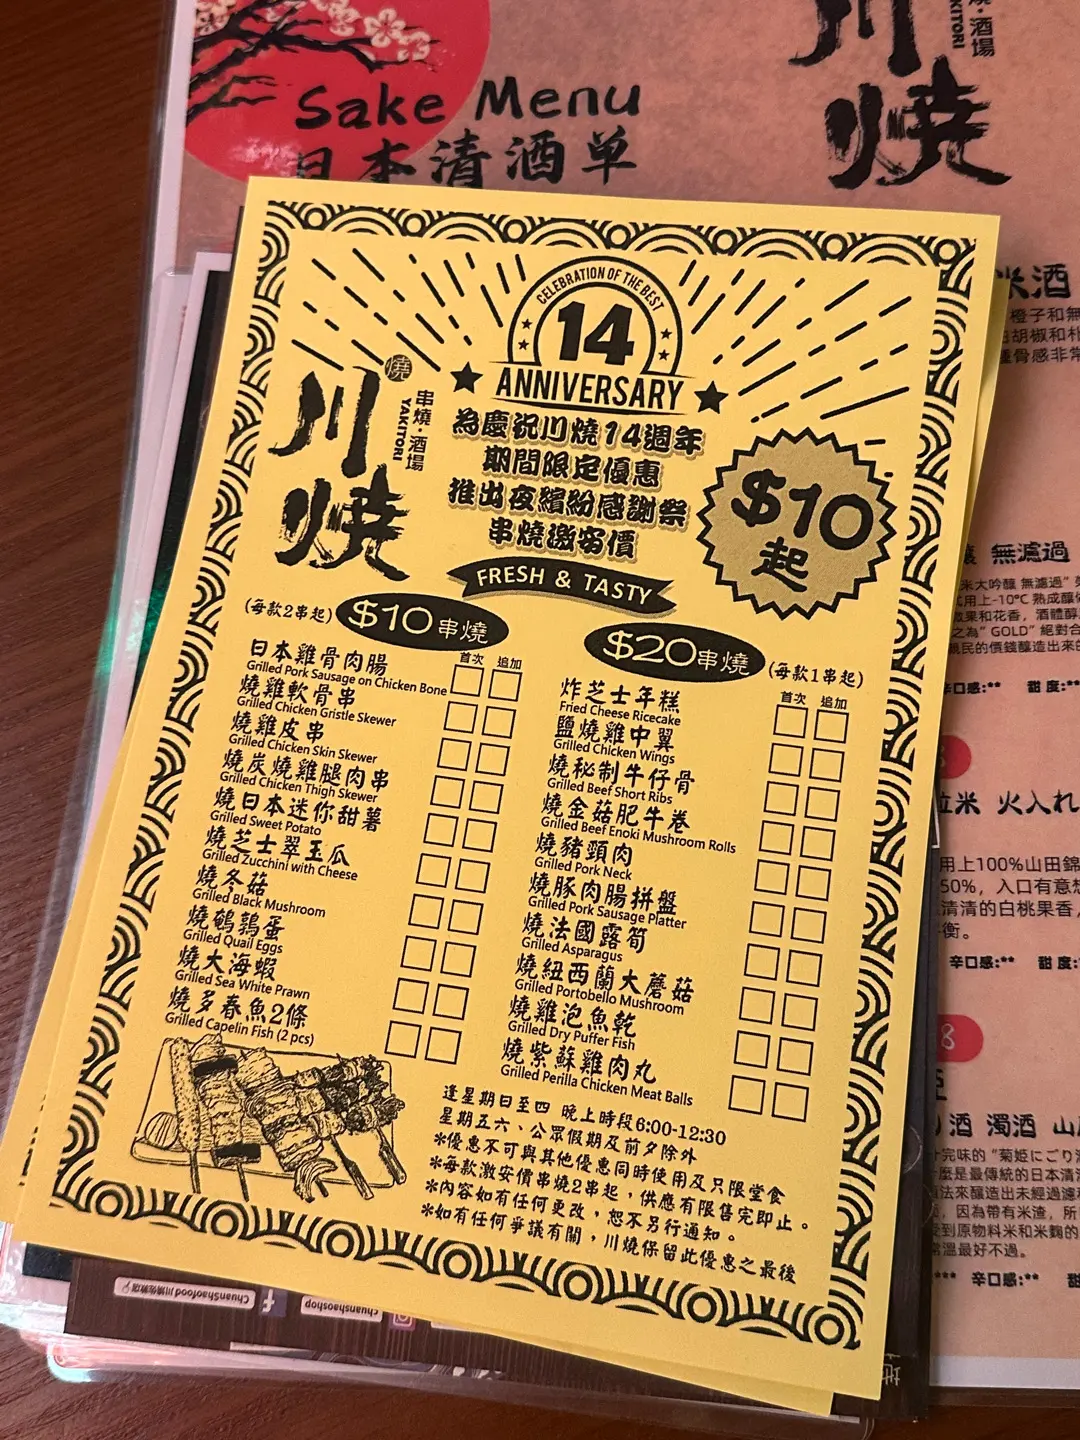 Sake Menu
日本清酒单
串燒·酒場
YAKITORI
川燒
CELEBRATION OF THE BEST
14
ANNIVERSARY
燒
川燒
串燒·酒場
YAKITORI
為慶祝川燒14週年
期間限定優惠
推出夜繽紛感謝祭
串燒激安價
$10
起
FRESH & TASTY
(每款2串起) $10串燒
首次 追加
日本雞骨肉腸
Grilled Pork Sausage on Chicken Bone
燒雞軟骨串
Grilled Chicken Gristle Skewer
燒雞皮串
Grilled Chicken Skin Skewer
燒炭燒雞腿肉串
Grilled Chicken Thigh Skewer
燒日本迷你甜薯
Grilled Sweet Potato
燒芝士翠玉瓜
Grilled Zucchini with Cheese
燒冬菇
Grilled Black Mushroom
燒鵪鶉蛋
Grilled Quail Eggs
燒大海蝦
Grilled Sea White Prawn
燒多春魚2條
Grilled Capelin Fish (2 pcs)
$20串燒 (每款1串起)
首次 追加
炸芝士年糕
Fried Cheese Ricecake
鹽燒雞中翼
Grilled Chicken Wings
燒秘制牛仔骨
Grilled Beef Short Ribs
燒金菇肥牛卷
Grilled Beef Enoki Mushroom Rolls
燒豬頸肉
Grilled Pork Neck
燒豚肉腸拼盤
Grilled Pork Sausage Platter
燒法國露筍
Grilled Asparagus
燒紐西蘭大蘑菇
Grilled Portobello Mushroom
燒雞泡魚乾
Grilled Dry Puffer Fish
燒紫蘇雞肉丸
Grilled Perilla Chicken Meat Balls
逢星期日至四 晚上時段6:00-12:30
星期五六、公眾假期及前夕除外
*優惠不可與其他優惠同時使用及只限堂食
*每款激安價串燒2串起，供應有限售完即止。
*內容如有任何更改，恕不另行通知。
*如有任何爭議有關，川燒保留此優惠之最後
米酒
橙子和無
胡椒和柑
骨感非常
無濾過
米大吟釀 無濾過"
用上-10°C 熟成釀
果和花香，酒體醇
之為" GOLD" 絕對合
親民的價錢釀造出來的
辛口感:** 甜度:**
米 火入れ
用上100%山田錦
50%，入口有意想
清清的白桃果香，
衡。
辛口感:** 甜度:
8
酒 濁酒 山
完味的 "菊姫にごり酒
麼是最傳統的日本清酒
法來釀造出未經過濾
，因為帶有米渣，所
受到原物料米和米麴的
常溫最好不過。
*** 辛口感:** 甜
ChuanShaofood 川燒佐敦店
chuanshaoshop